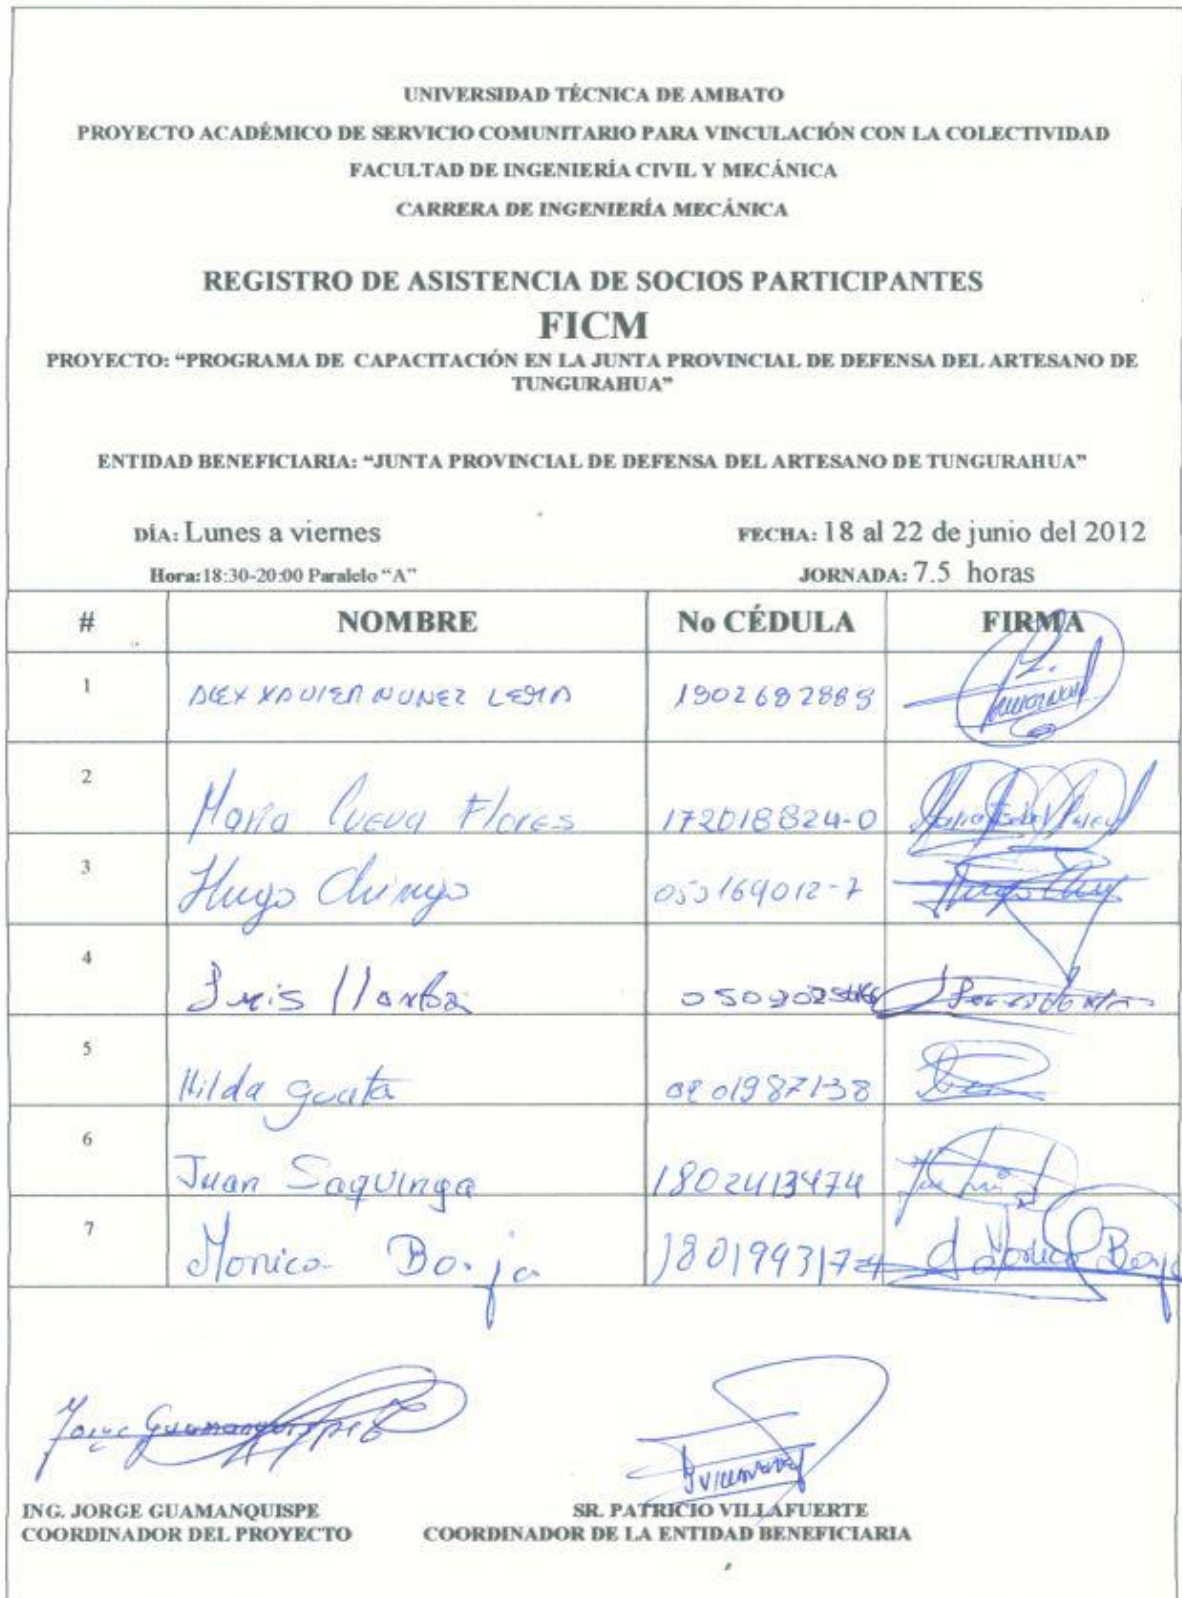 UNIVERSIDAD TÉCNICA DE AMBATO
PROYECTO ACADÉMICO DE SERVICIO COMUNITARIO PARA VINCULACIÓN CON LA COLECTIVIDAD
FACULTAD DE INGENIERÍA CIVIL Y MECÁNICA
CARRERA DE INGENIERÍA MECÁNICA
REGISTRO DE ASISTENCIA DE SOCIOS PARTICIPANTES
FICM
PROYECTO: “PROGRAMA DE CAPACITACIÓN EN LA JUNTA PROVINCIAL DE DEFENSA DEL ARTESANO DE
TUNGURAHUA”
ENTIDAD BENEFICIARIA: “JUNTA PROVINCIAL DE DEFENSA DEL ARTESANO DE TUNGURAHUA”
DÍA: Lunes a viernes FECHA: 18 al 22 de junio del 2012
Hora:18:30-20:00 Paralelo “A” JORNADA: 7.5 horas
# NOMBRE No CÉDULA FIRMA
1 ALEX XAVIER NUNEZ 
2 Maria Cueva Flores 172018824-0
3 Hugo Chingo
4 Luis
5 Hilda Guata
6 Juan Saquinga 1802413474
7 Monica Borja Monica Borja
Jorge Guamanquispe
ING. JORGE GUAMANQUISPE SR. PATRICIO VILLAFUERTE
COORDINADOR DEL PROYECTO COORDINADOR DE LA ENTIDAD BENEFICIARIA